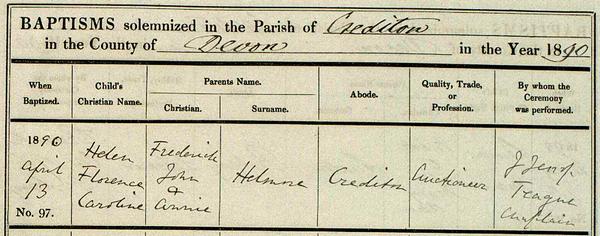 BAPTISMS solemnized in the Parish of Crediton
in the County of Devon in the Year 1890
When Baptized. Child's Christian Name. Parents Name. Abode. Quality, Trade, or Profession. By whom the Ceremony was performed.
Christian. Surname.
1890
April
13
No. 97.
Helen
Florence
Caroline
Frederick
John
&
Annie
Helmore
Crediton
Auctioneer
J
Teague
Chaplain